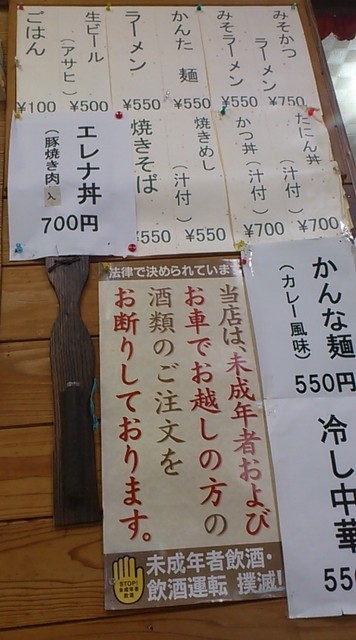 みそかつ
ラーメン
¥750
みそラーメン
¥550
かんた麺
¥550
ラーメン
¥550
生ビール
(アサヒ)
¥500
ごはん
¥100
たにん丼
(汁付)
¥700
かつ丼
(汁付)
¥700
焼きめし
(汁付)
¥550
焼きそば
¥550
エレナ丼
(豚焼き肉入)
700円
かんな麺
(カレー風味)
550円
冷し中華
55
法律で決められていま
当店は、未成年者および
お車でお越しの方の
酒類のご注文を
お断りしております。
STOP!
未成年者
飲酒
未成年者飲酒・
飲酒運転 撲滅!